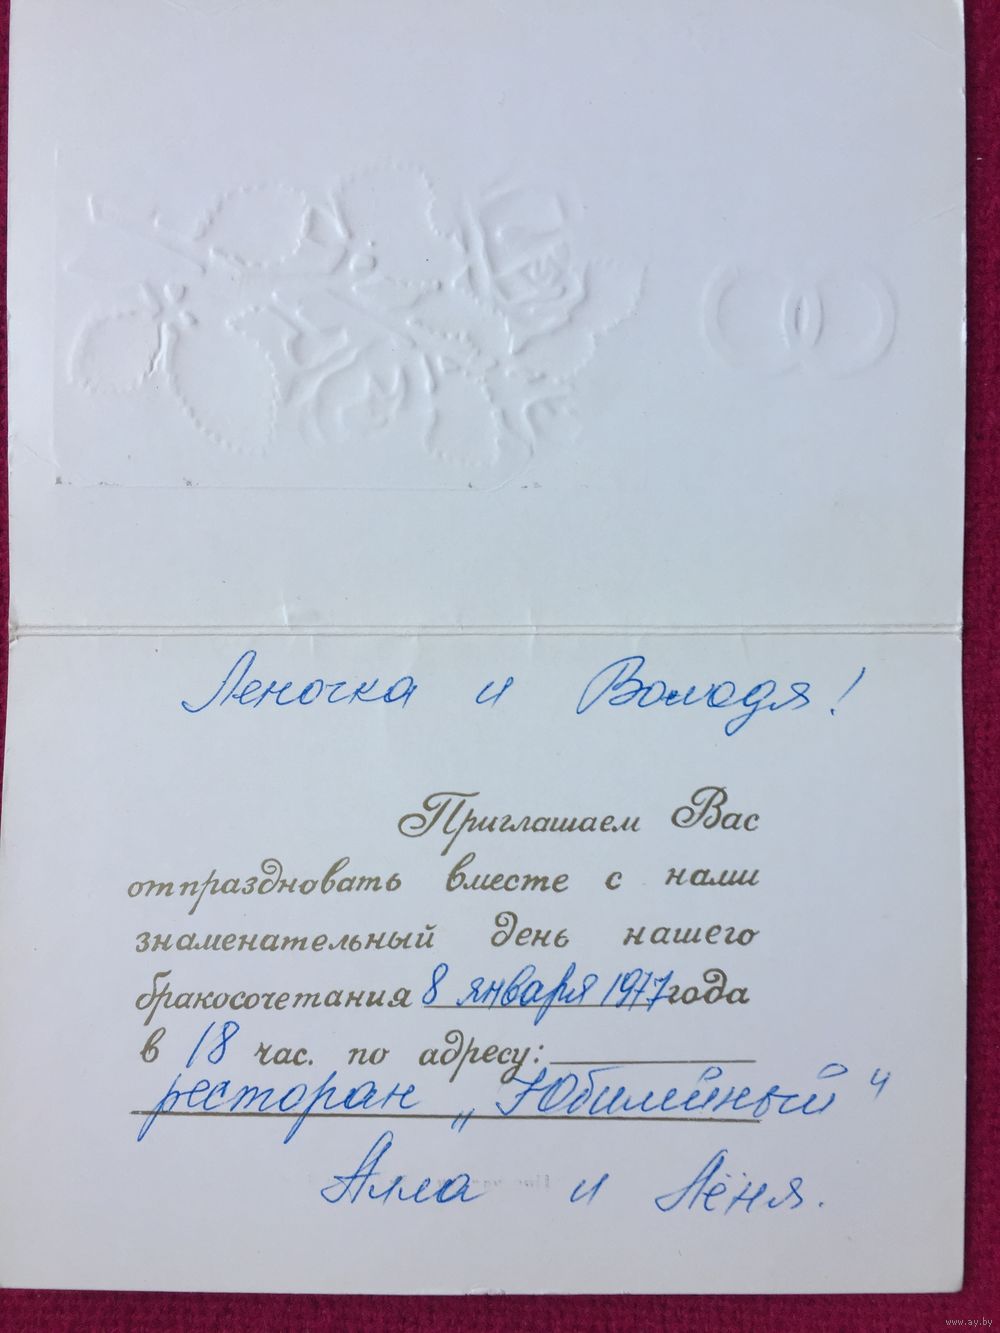 Леночка и Володя!
Приглашаем Вас
отпраздновать вместе с нами
знаменательный день нашего
бракосочетания 8 января 1977 года
в 18 час. по адресу:
ресторан „Юбилейный“
Алла и Лёня.
www.ay.by